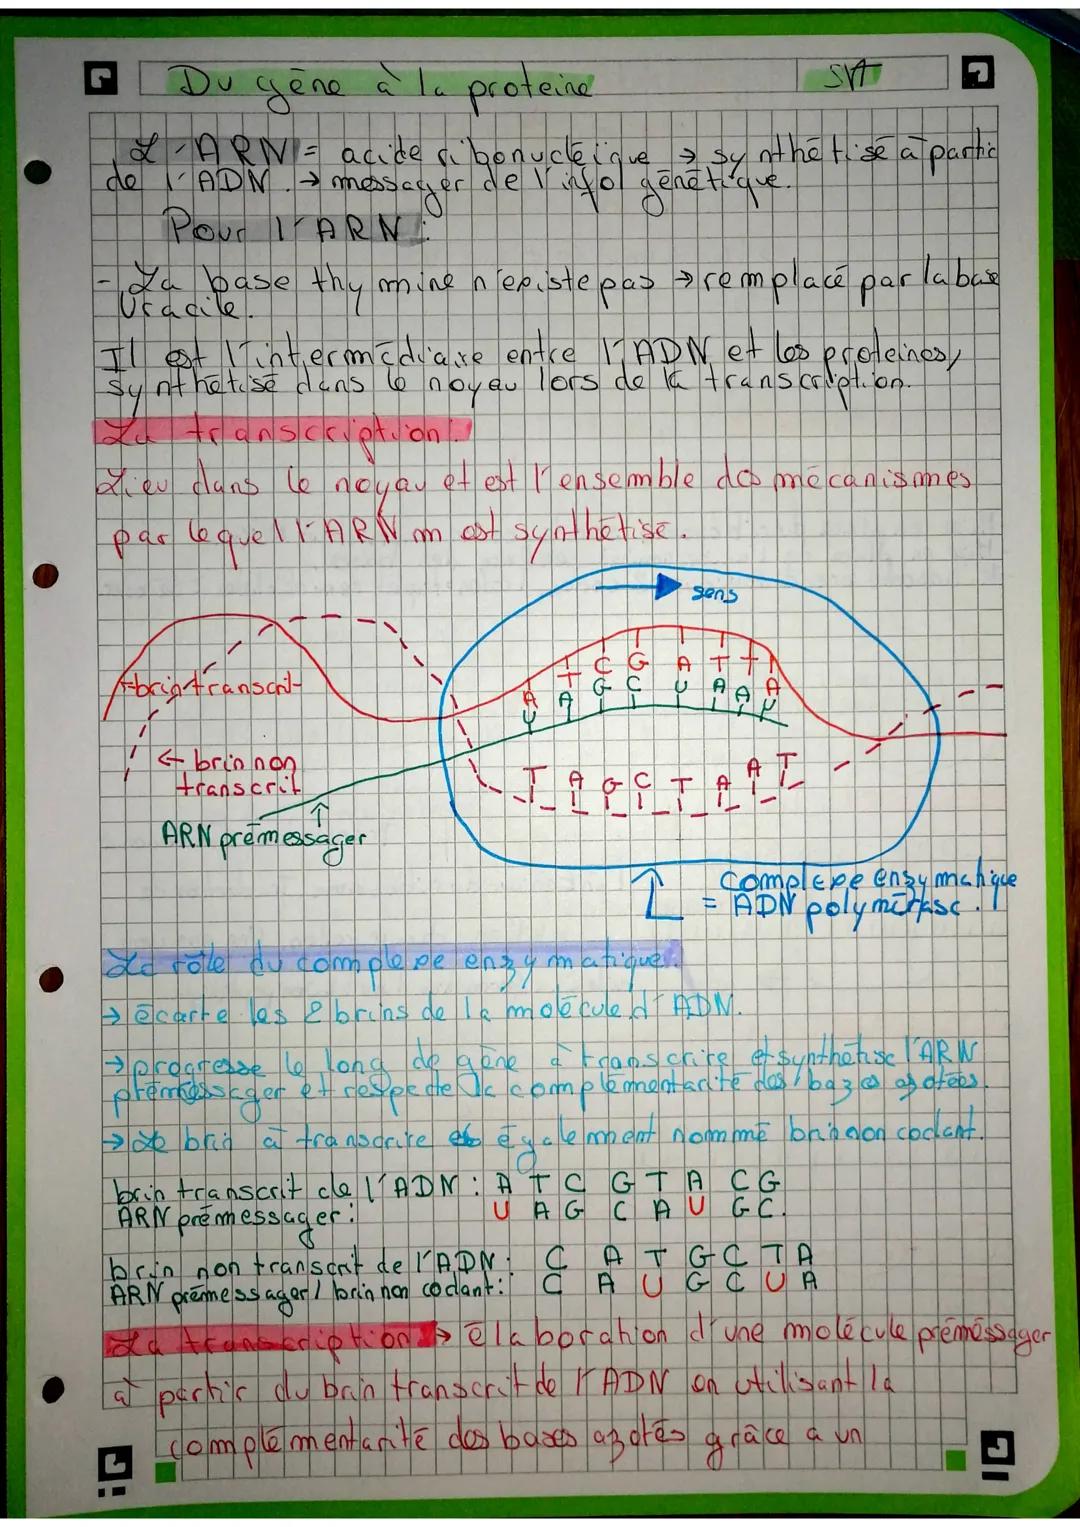 Du gēne à la proteine
SVT
L'ARN = acide ribonuclēique → synthētisē ā partir
de l'ADN. → messager de l'info/ gēnētique.
Pour l'ARN :
- La base thymine n'existe pas → remplacē par la base
Uracile.
Il est l'intermēdiaire entre l'ADN et les proteines,
synthētisē dans le noyau lors de la transcription.
La transcription :
Lieu dans le noyau et est l'ensemble des mēcanismes
par lequel l'ARN m est synthētisē.
sens
T C G A T T A
A A G C U A A A U
U
← brin transcrit
← brin non
transcrit
T A G C T A A T
ARN prēmessager
complexe enzymatique
= ADN polymērase.
Le rôle du complexe enzymatique :
→ ēcarte les 2 brins de la molēcule d'ADN.
→ progresse le long de gēne ā transcrire et synthētise l'ARN
prēmessager et respecte la complēmentaritē des bazes azotēes.
→ Le brin ā transcrire est ēgalement nommē brin non codant.
brin transcrit de l'ADN : A T C G T A C G
ARN prēmessager : U A G C A U G C.
brin non transcrit de l'ADN : C A T G C T A
ARN prēmessager / brin non codant : C A U G C U A
La transcription → ēlaboration d'une molēcule prēmēssager
ā partir du brin transcrit de l'ADN en utilisant la
complēmentaritē des bases azotēs grâce a un